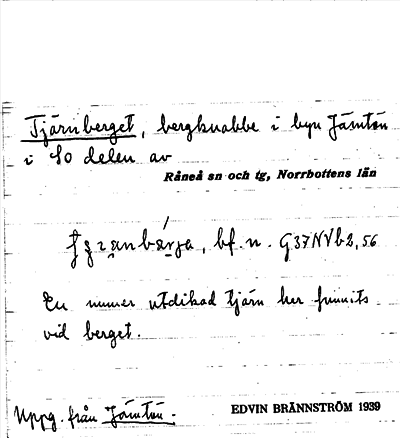 Tjärnberget, bergknabbe i byn Jämtön
i SO delen av
Råneå sn och tg, Norrbottens län
bf. n. G37NVb2,56
En numer utdikad tjärn har funnits
vid berget.
Uppg. från Jämtön.
EDVIN BRÄNNSTRÖM 1939